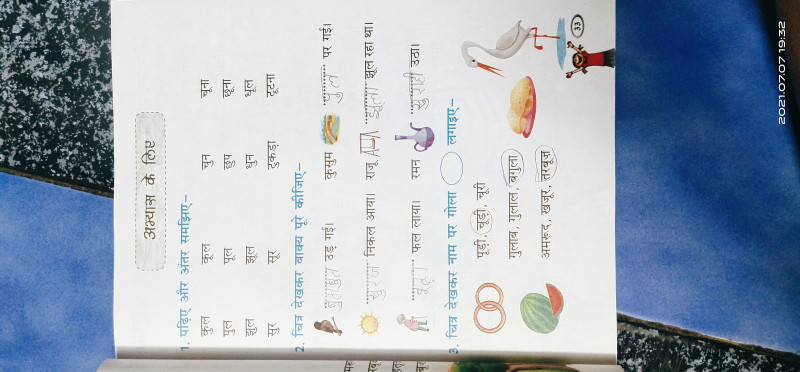 अभ्यास के लिए
1. पढ़िए और अंतर समझिए–
कुल कूल चुन चूना
पुल पूल छुप छूना
झुल झूल धुन धूल
सुर सूर टुकड़ा टूटना
2. चित्र देखकर वाक्य पूरे कीजिए–
बुलबुल उड़ गई। कुसुम पुल पर गई।
सूरज निकल आया। राजू झूला झूल रहा था।
बूढ़ा फल लाया। रमन सुराही उठा।
3. चित्र देखकर नाम पर गोला लगाइए–
पूड़ी, चूड़ी, चूरी
गुलाब, गुलाल, बगुला
अमरूद, खजूर, तरबूज
33
2021.07.07 19:32